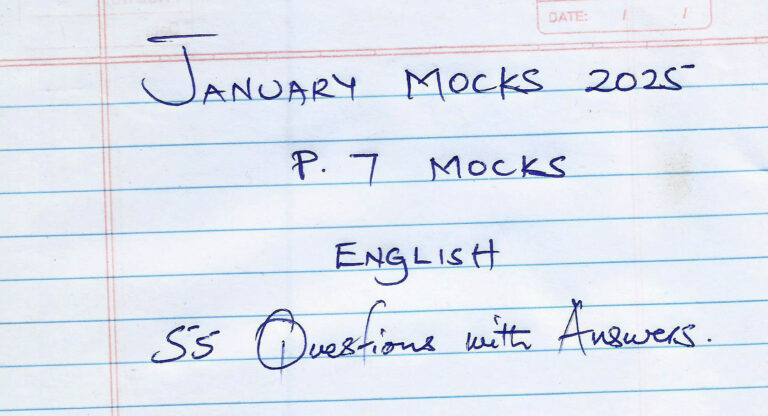 DATE: / /
JANUARY MOCKS 2025
P. 7 MOCKS
ENGLISH
55 Questions with Answers.